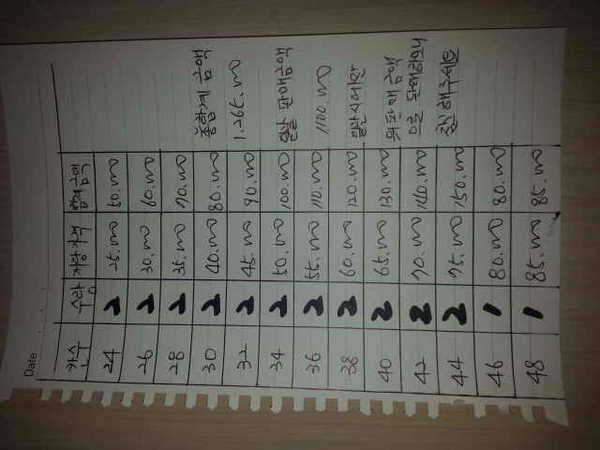 Date
칸수 수량 개당가격 합계금액
24 2 25.000 50.000
26 2 30.000 60.000
28 2 35.000 70.000
30 2 40.000 80.000
32 2 45.000 90.000
34 2 50.000 100.000
36 2 55.000 110.000
38 2 60.000 120.000
40 2 65.000 130.000
42 2 70.000 140.000
44 2 75.000 150.000
46 1 80.000 80.000
48 1 85.000 85.000
총합계 금액
1.265.000
일괄 판매금액
1100.000
일괄시에만
위판매 금액
으로 판매하오니
해주세요